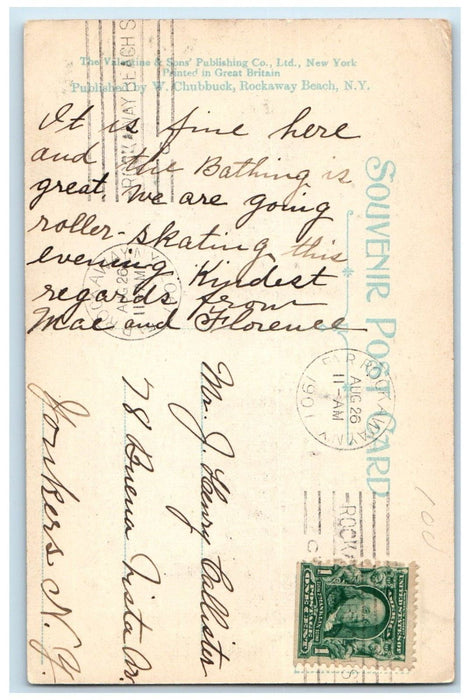 The Valentine & Sons' Publishing Co., Ltd., New York
Printed in Great Britain
Published by W. Chubbuck, Rockaway Beach, N.Y.
It is fine here
and the Bathing is
great. We are going
roller-skating this
evening. Kindest
regards from
Mae and Florence
SOUVENIR POST CARD
FAR ROCKAWAY N.Y.
AUG 26
11-AM
1907
Mr. J. Henry Callister
78 Buena Vista Av.
Yonkers N.Y.
ROCKAWAY BEACH S
ROCKA
AUG 26
11
100
1
1